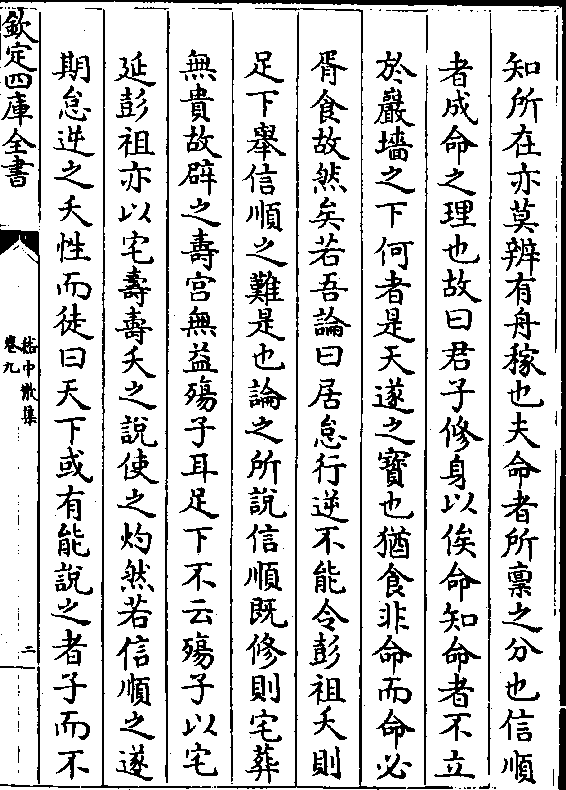 知所在亦莫辨有舟稼也夫命者所禀之分也信順
者成命之理也故曰君子修身以俟命知命者不立
於嚴墻之下何者是夭遂之寳也猶食非命而命必
胥食故然矣若吾論曰居怠行逆不能令彭祖夭則
足下舉信順之難是也論之所説信順既修則宅葬
無貴故辟之壽宫無益殤子耳足下不云殤子以宅
延彭祖亦以宅壽壽夭之説使之灼然若信順之遂
期怠逆之夭性而徒曰天下或有能説之者子而不
欽定四庫全書
嵇中散集
卷九
二